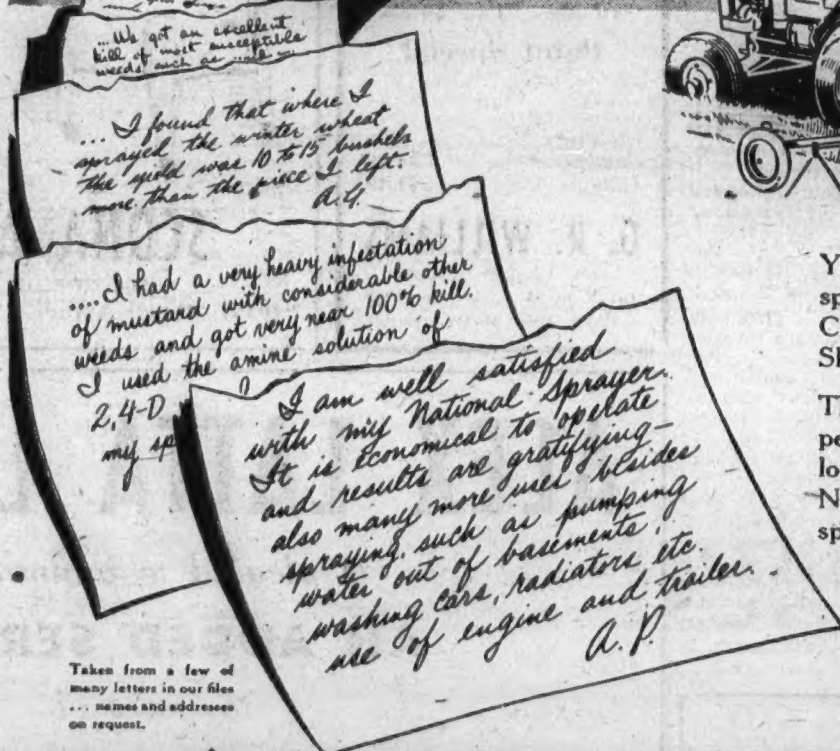 ... We got an excellent
kill of most susceptible
weeds such as
... I found that where I
sprayed the winter wheat
the yield was 10 to 15 bushels
more than the piece I left.
A.G.
.... I had a very heavy infestation
of mustard with considerable other
weeds and got very near 100% kill.
I used the amine solution of
2,4-D
my sp
I am well satisfied
with my National Sprayer.
It is economical to operate
and results are gratifying—
also many more uses besides
spraying, such as pumping
water out of basements,
washing cars, radiators, etc.
use of engine and trailer.
A.P.
Taken from a few of
many letters in our files
... names and addresses
on request.
Y
sp
C
Sl
T
pe
lo
N
sp